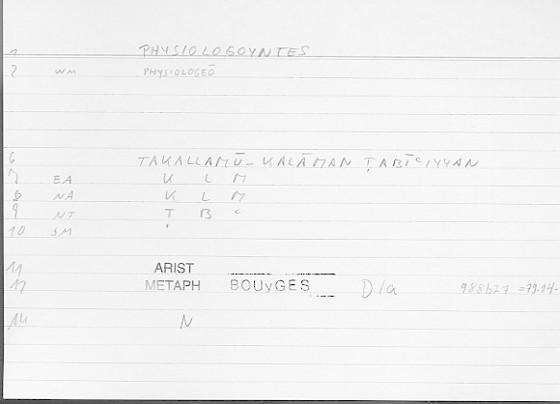 1 PHYSIOLOGOYNTES
2 WM PHYSIOLOGEŌ
6 TAKALLAMŪ-KALĀMAN ṬABĪʿIYYAN
7 EA K L M
8 NA K L M
9 NT T B ʿ
10 SM '
11 ARIST
12 METAPH BOUyGES D/a 988b27 =79.14-
14 N